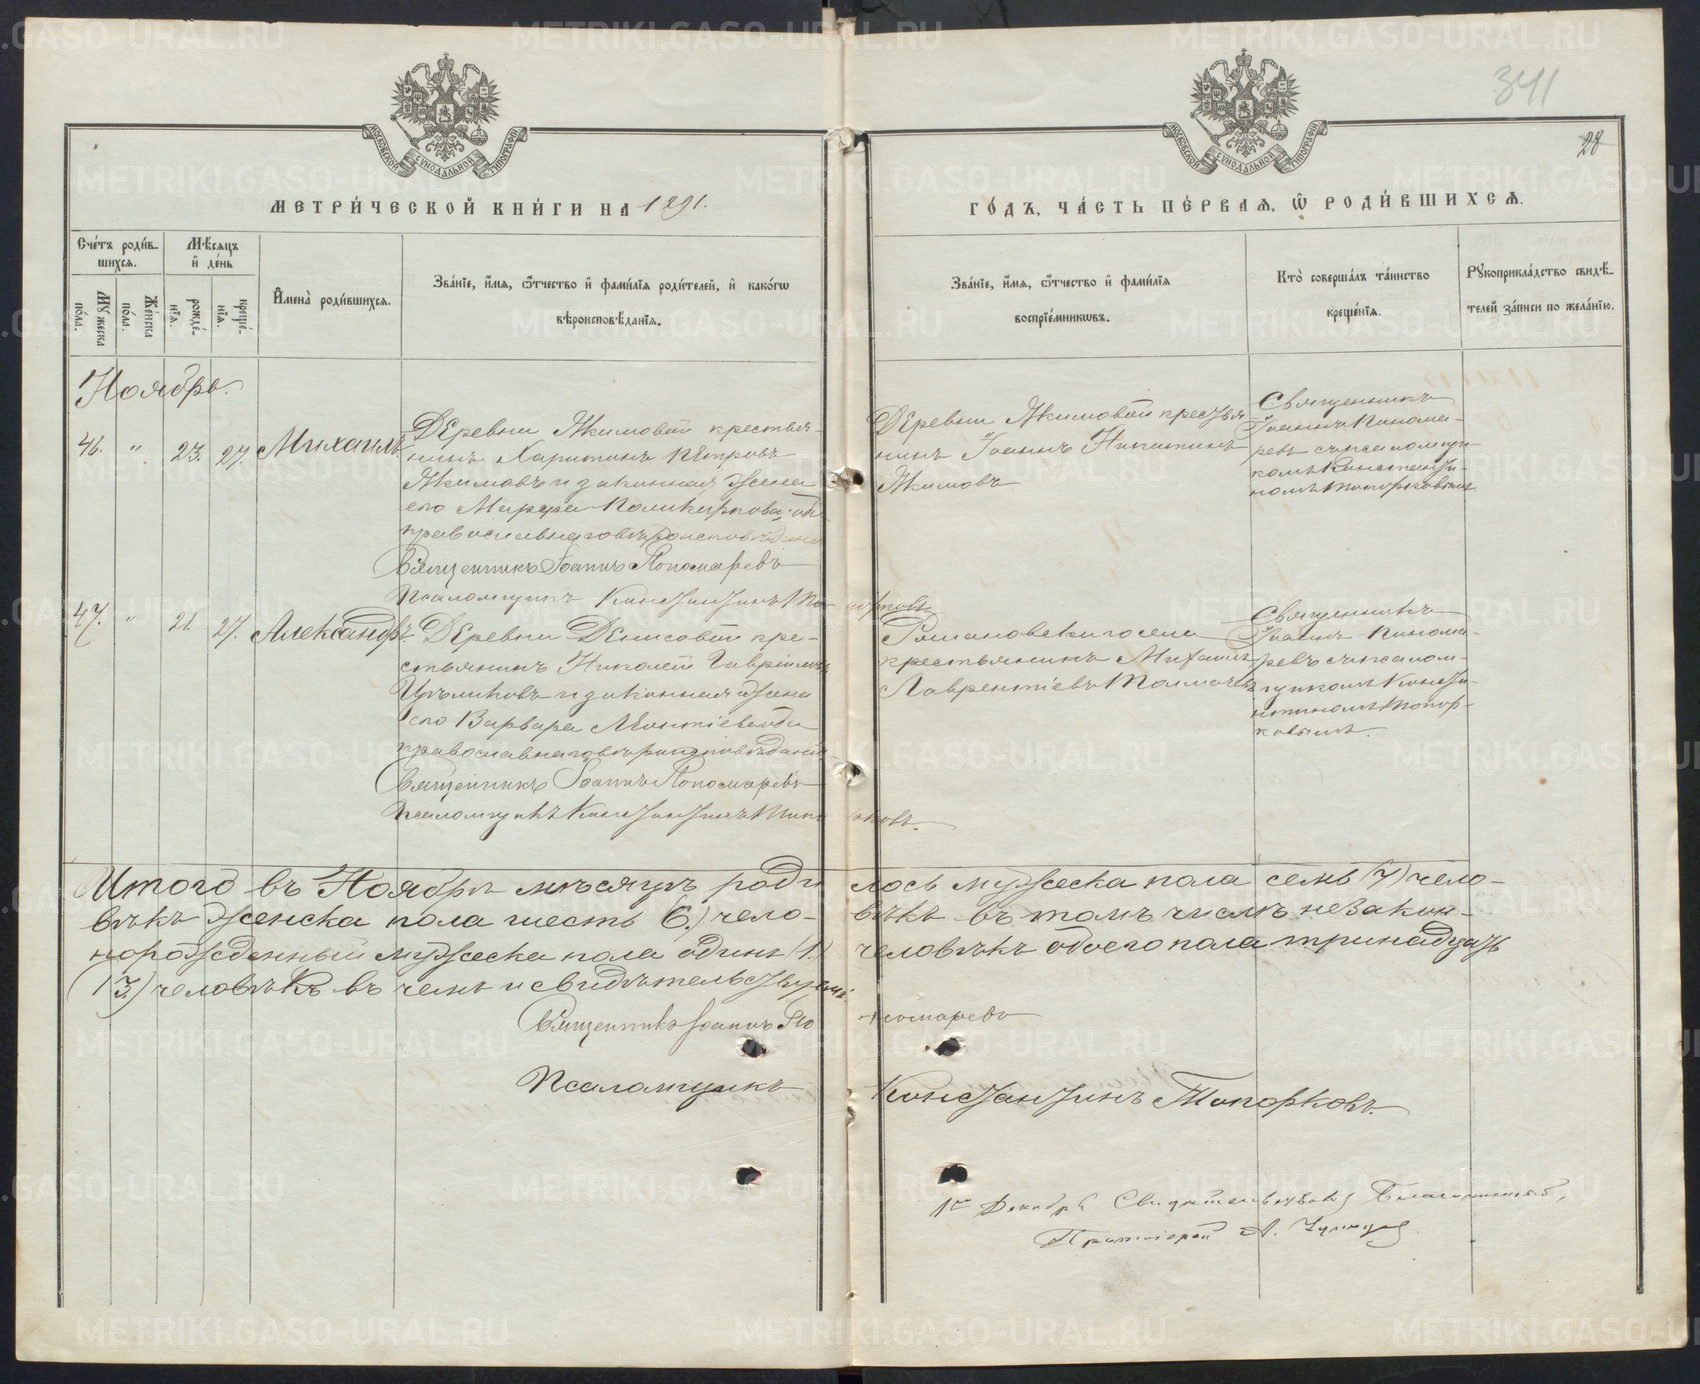 341
28
МОСКОВСКОЙ СУНОДАЛЬНОЙ ТИПОГРАФІИ
МОСКОВСКОЙ СУНОДАЛЬНОЙ ТИПОГРАФІИ
МЕТРИ́ЧЕСКОЙ КНИ́ГИ НА 1891.
ГО́ДЪ, ЧА́СТЬ ПЕ́РВАЯ, Ѡ РОДИ́ВШИХСѦ.
Сче́тъ роди́в-
шихсѧ.
Мѣ́сѧцъ
и҆ де́нь
Му́жеска
по́ла.
Же́нска
по́ла.
рожде́-
нїѧ.
креще́-
нїѧ.
И҆мена̀ роди́вшихсѧ.
Зва́нїе, и҆́мѧ, ѻ҆́тчество и҆ фами́лїѧ роди́телей, и҆ како́гѡ
вѣроисповѣ́данїѧ.
Зва́нїе, и҆́мѧ, ѻ҆́тчество и҆ фами́лїѧ
воспрїе́мникѡвъ.
Кто̀ соверша́лъ та́инство
креще́нїѧ.
Рꙋкоприкла́дство свидѣ́-
телей за́писи по жела́нїю.
Ноябрь.
46. " 23. 27. Михаилъ
Деревни Якимовой крестья-
нинъ Харитонъ Петровъ
Якимовъ и законная жена
его Марфа Поликарпова; оба
православнаго вѣроисповѣданія
Священникъ Іоаннъ Пономаревъ
Псаломщикъ Константинъ Топорковъ
Деревни Якимовой крестья
нинъ Іоаннъ Никитинъ
Якимовъ
Священникъ
Іоаннъ Понома-
ревъ съ псаломщи-
комъ Константи-
номъ Топорковымъ
47. " 21. 27. Александръ
Деревни Денисовой кре-
стьянинъ Николай Гавріиловъ
и законная жена
его Варвара Леонтіева оба
православнаго вѣроисповѣданія
Священникъ Іоаннъ Пономаревъ
Псаломщикъ Константинъ Топорковъ.
Романовскаго села
крестьянинъ Михаилъ
Лаврентіевъ Толмачевъ
Священникъ
Іоаннъ Понома-
ревъ съ псалом-
щикомъ Конста-
нтиномъ Топор-
ковымъ.
Итого въ Ноябрѣ мѣсяцѣ родилось мужеска пола семь (7) чело-
вѣкъ женска пола шесть (6.) чело-вѣкъ въ томъ числѣ незакон-
норожденный мужеска пола одинъ (1.) человѣкъ обоего пола тринадцать
(13) человѣкъ въ чемъ и свидѣтельствуемъ:
Священникъ Іоаннъ Пономаревъ
Псаломщикъ Константинъ Топорковъ.
1го Декабря Свидѣтельствовалъ Благочинный,
Протоіерей А.
METRIKI.GASO-URAL.RU